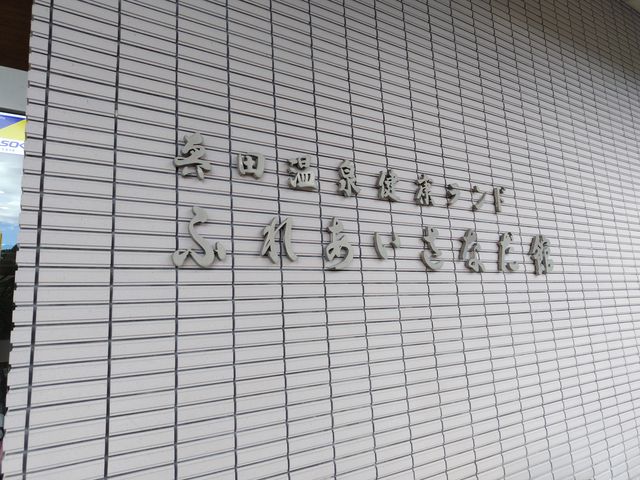 真田温泉健康ランド
ふれあいさなだ館